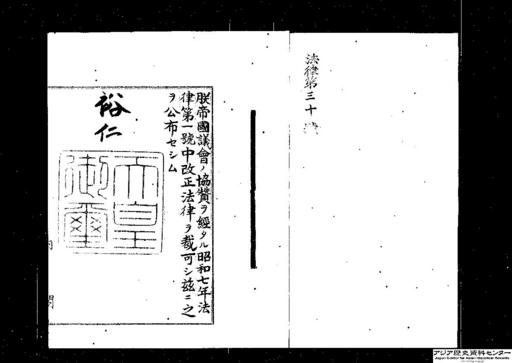 法律第三十
朕帝國議會ノ協贊ヲ經タル昭和七年法
律第一號中改正法律ヲ裁可シ茲ニ之
ヲ公布セシム
裕仁
天皇
御璽
アジア歴史資料センター
Japan Center for Asian Historical Records